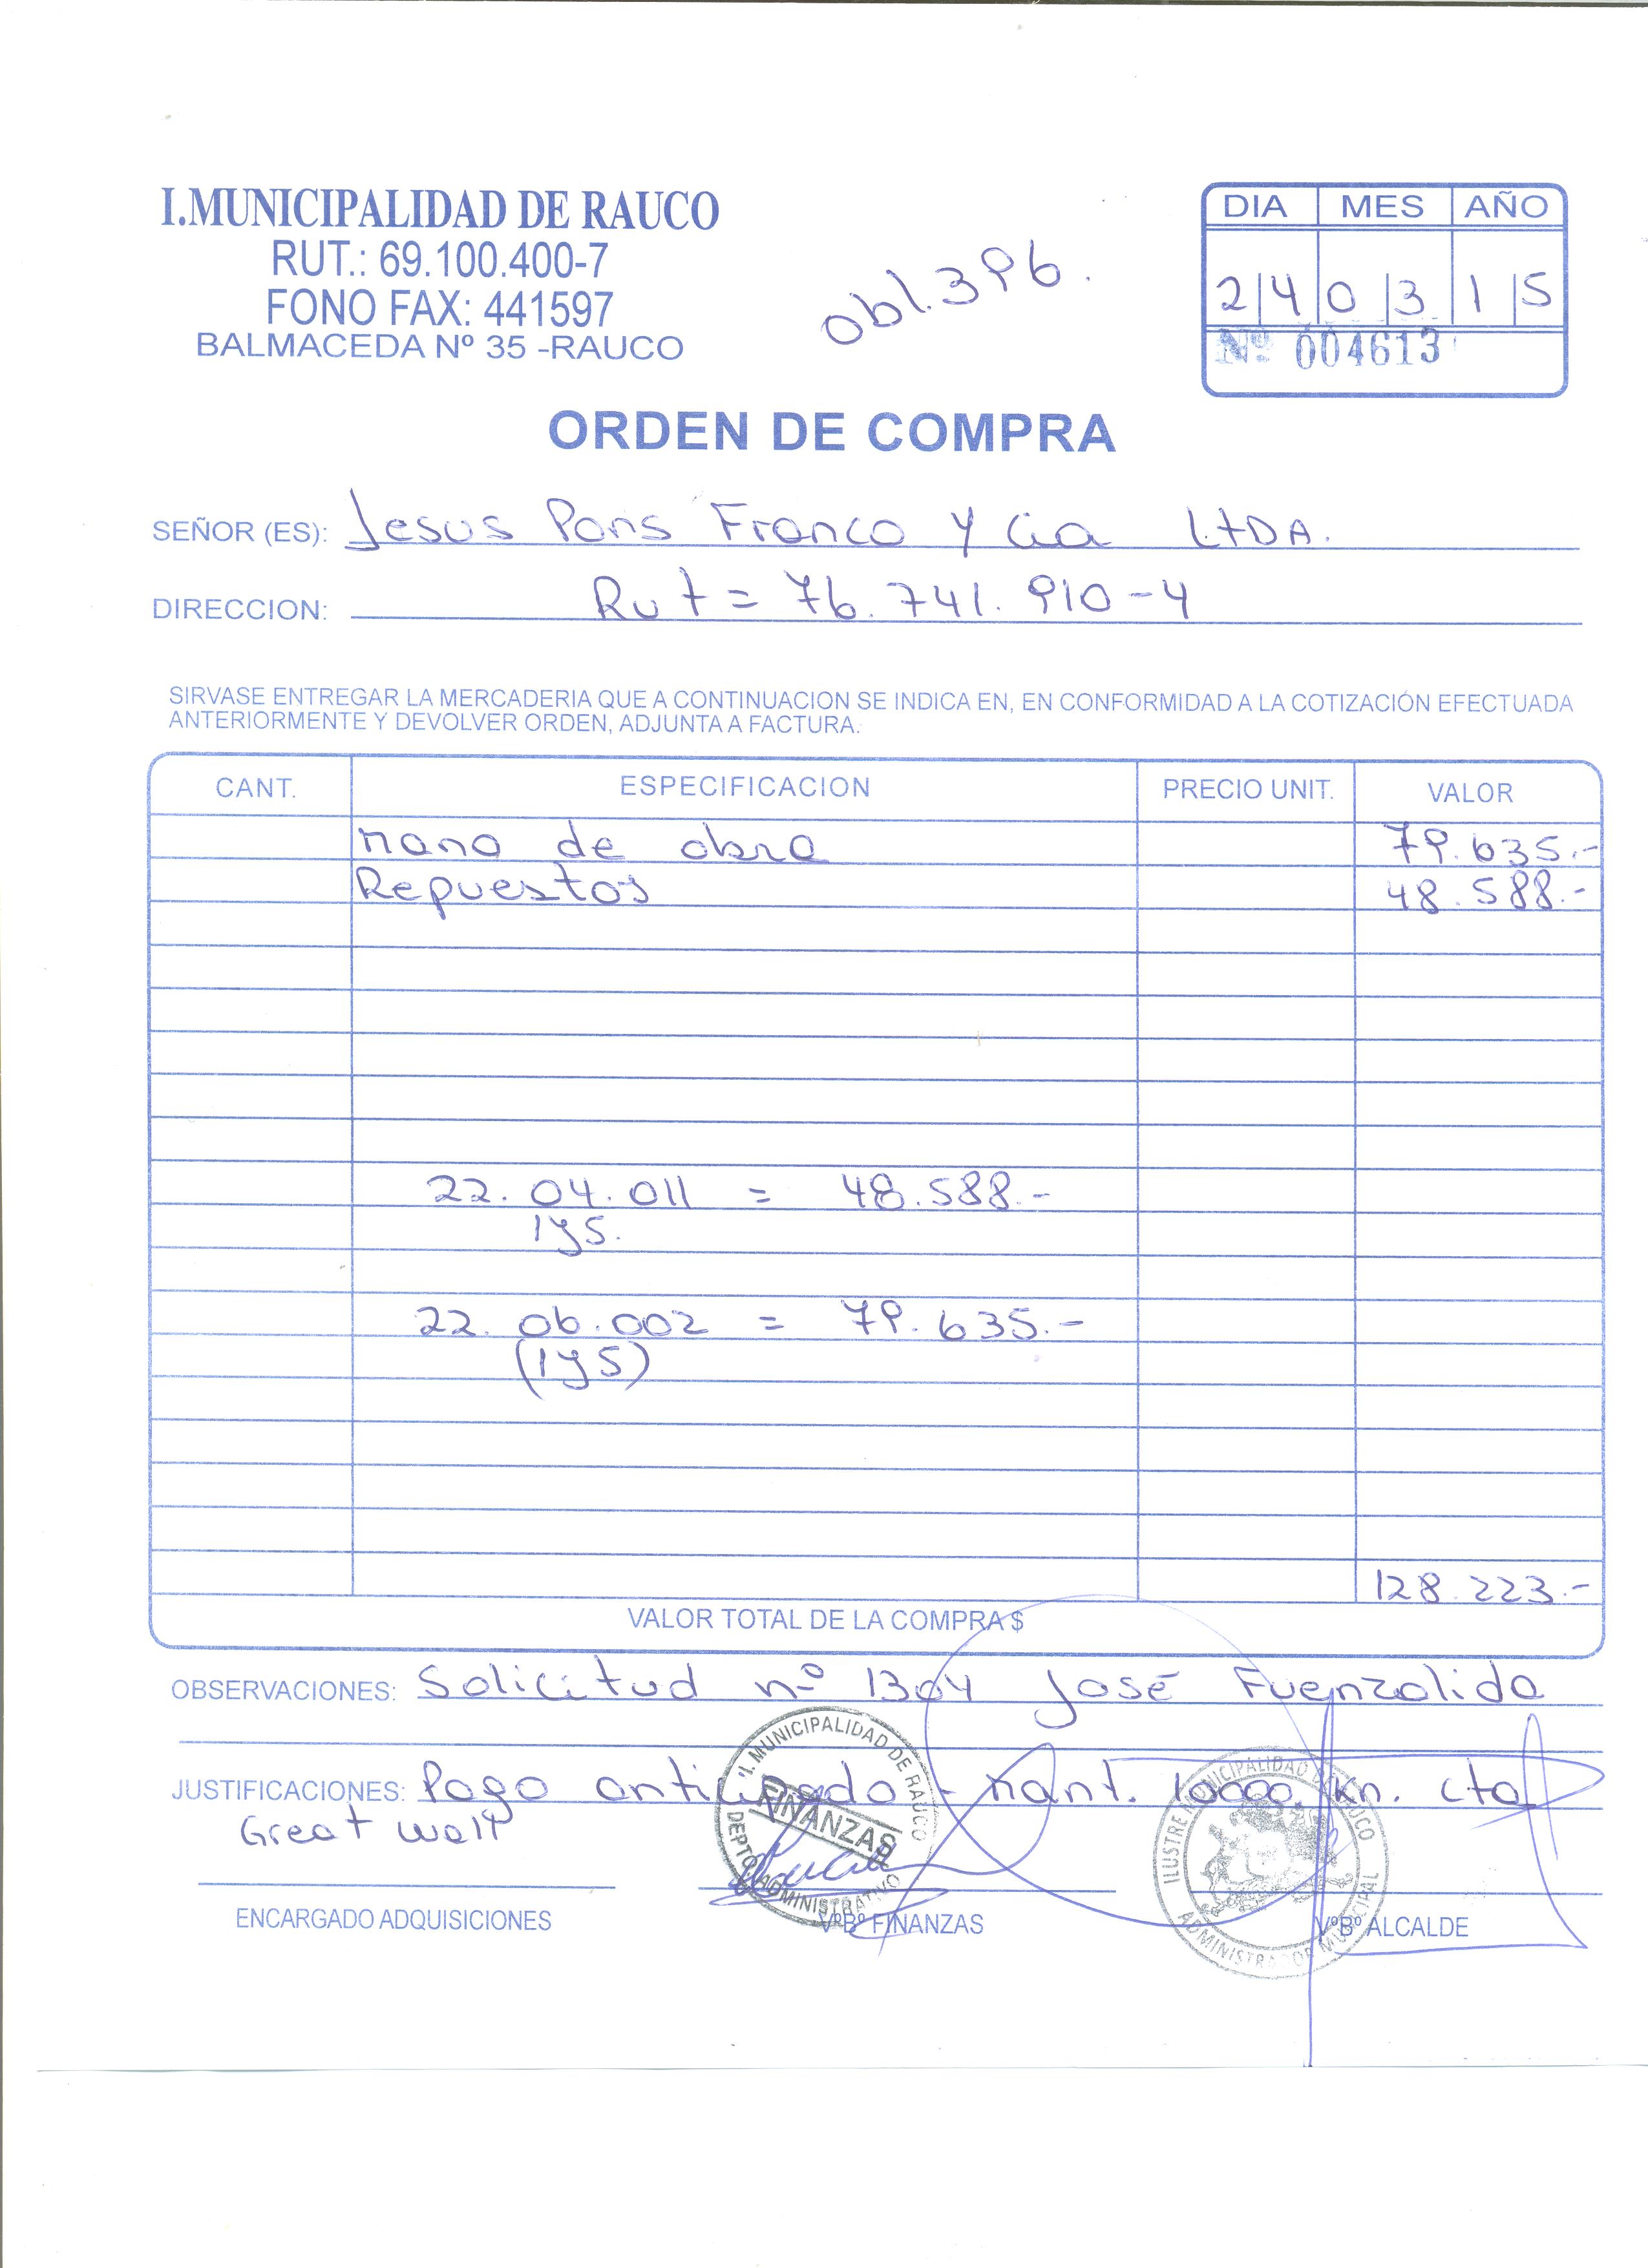 I.MUNICIPALIDAD DE RAUCO
RUT.: 69.100.400-7
FONO FAX: 441597
BALMACEDA Nº 35 -RAUCO
obl. 396.
DIA MES AÑO
2 4 0 3 1 5
Nº 004613
ORDEN DE COMPRA
SEÑOR (ES): Jesus Pons Franco y Cia LtDA.
DIRECCION: Rut = 76.741.910-4
SIRVASE ENTREGAR LA MERCADERIA QUE A CONTINUACION SE INDICA EN, EN CONFORMIDAD A LA COTIZACIÓN EFECTUADA
ANTERIORMENTE Y DEVOLVER ORDEN, ADJUNTA A FACTURA.
CANT. ESPECIFICACION PRECIO UNIT. VALOR
mano de obra 79.635.-
Repuestos 48.588.-
22.04.011 = 48.588.-
1y5.
22.06.002 = 79.635.-
(1y5)
128.223.-
VALOR TOTAL DE LA COMPRA $
OBSERVACIONES: Solicitud nº 1304 José Fuenzalida
JUSTIFICACIONES: Pago anticipado - mant. 10000 km. cta
Great wall
I. MUNICIPALIDAD DE RAUCO
FINANZAS
DEPTO. ADMINISTRATIVO
ILUSTRE MUNICIPALIDAD DE RAUCO
ADMINISTRADOR MUNICIPAL
ENCARGADO ADQUISICIONES VºBº FINANZAS VºBº ALCALDE